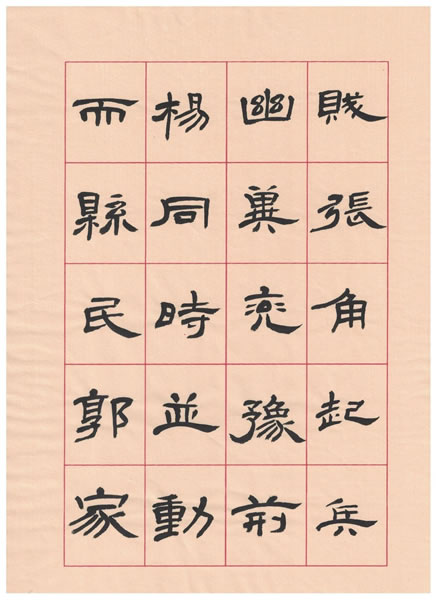 賊張角起兵
幽冀兗豫荊
楊同時並動
而縣民郭家